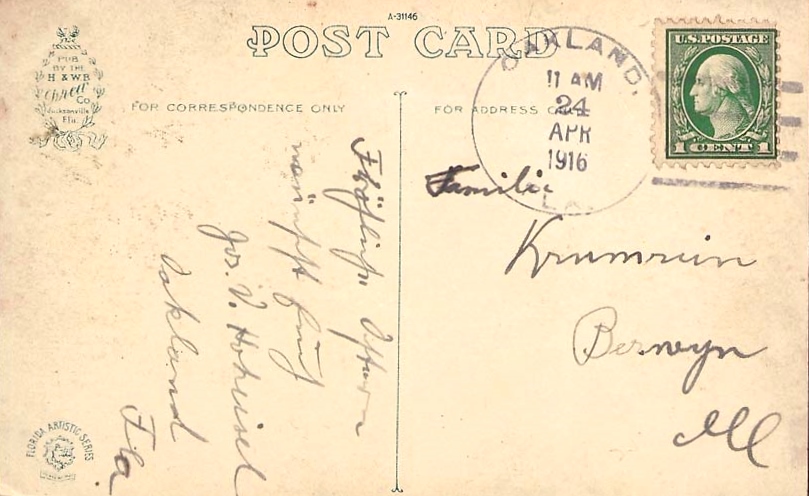 A-31146
POST CARD
PUB.
BY THE
H & W.B.
Drew
Co
Jacksonville
Fla.
FOR CORRESPONDENCE ONLY
FOR ADDRESS ONLY
OAKLAND,
11 AM
24
APR
1916
FLA.
U.S. POSTAGE
1 CENT 1
Fröhliche Ostern
wünscht Euch
Jos. V. Hoheisel
Oakland
Fla
Familie
Krumrein
Berwyn
Ill
FLORIDA ARTISTIC SERIES